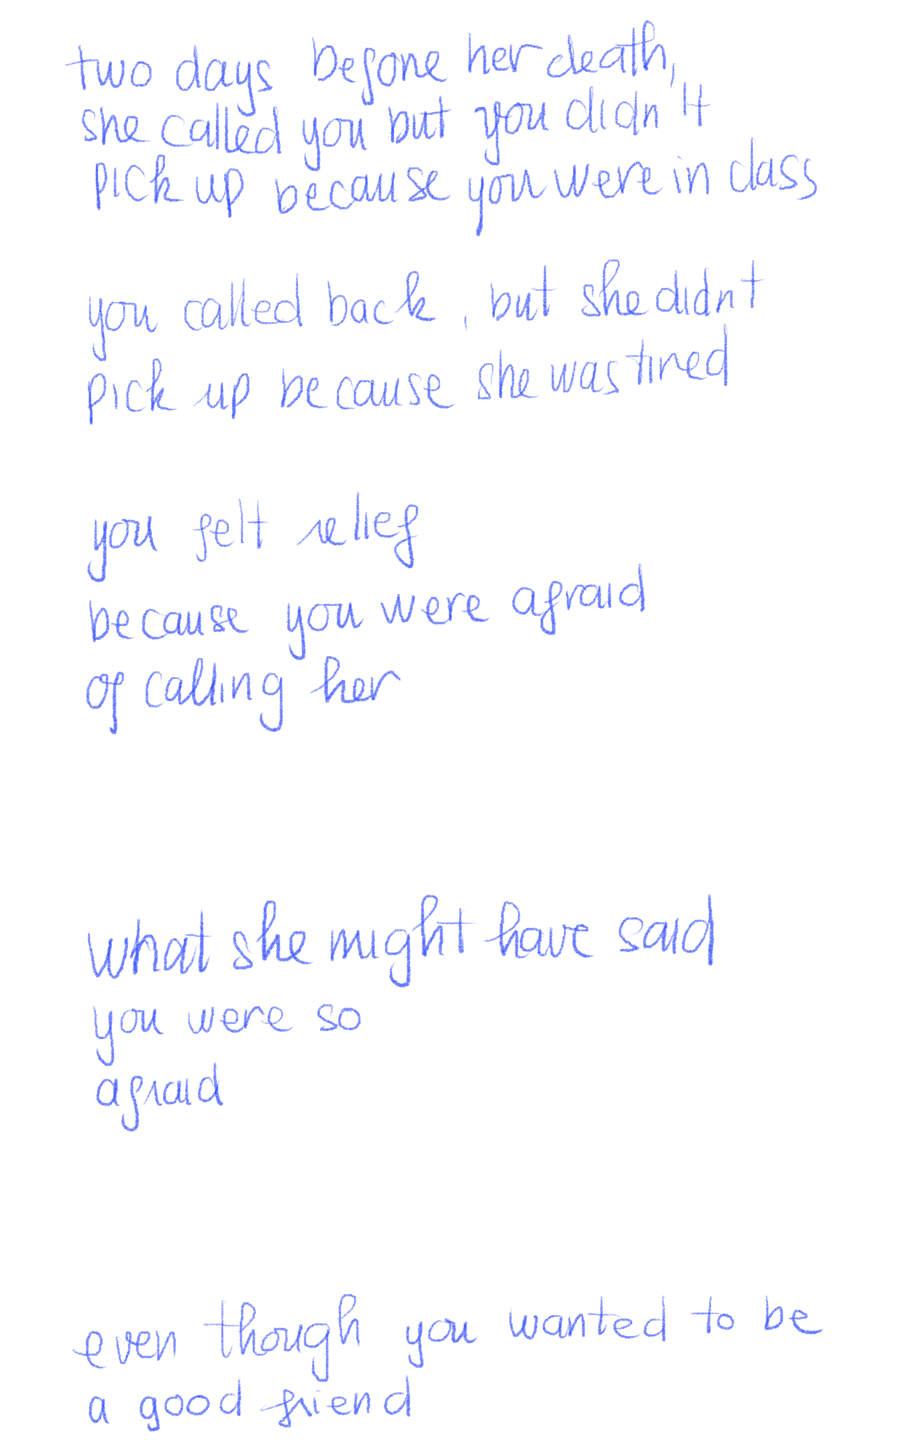 two days before her death,
she called you but you didn't
pick up because you were in class
you called back, but she didnt
pick up because she was tired
you felt relief
because you were afraid
of calling her
what she might have said
you were so
afraid
even though you wanted to be
a good friend